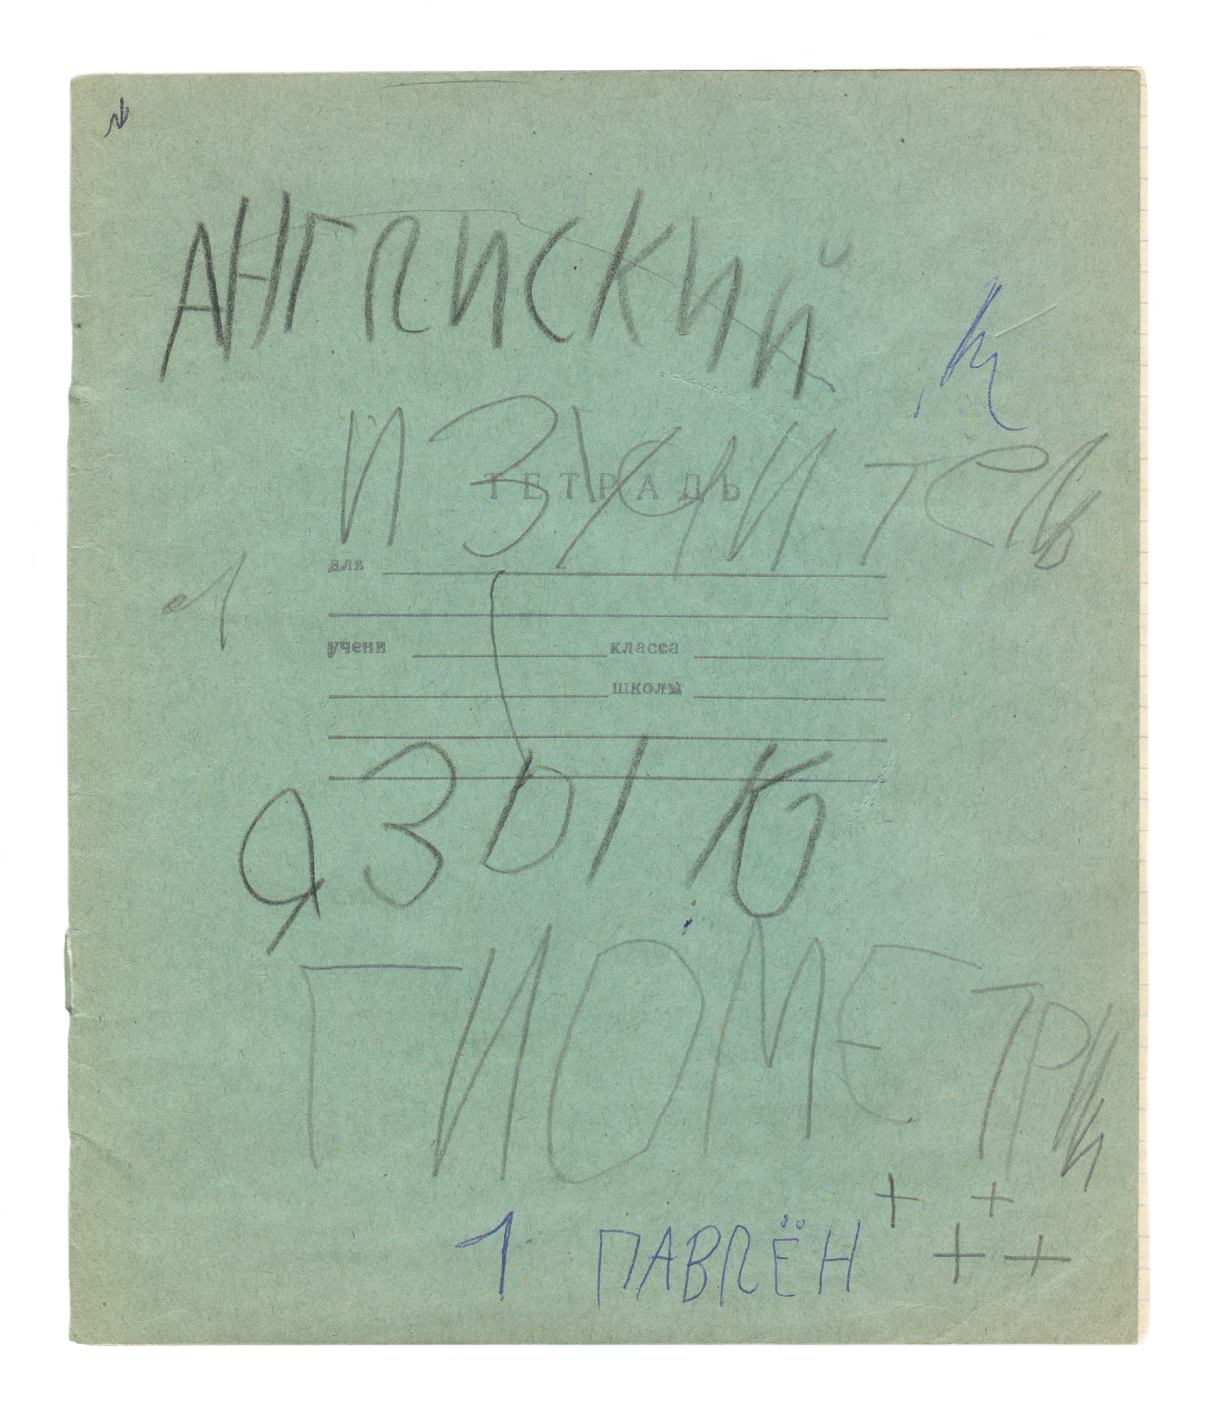 АНГЛИСКИЙ
ИЗУЧИТЕЛЬ
ТЕТРАДЬ
для
1
учени класса
школы
ЯЗЫК
ГИОМЕТРИИ
+ +
+ +
1 ПАВЛЁН